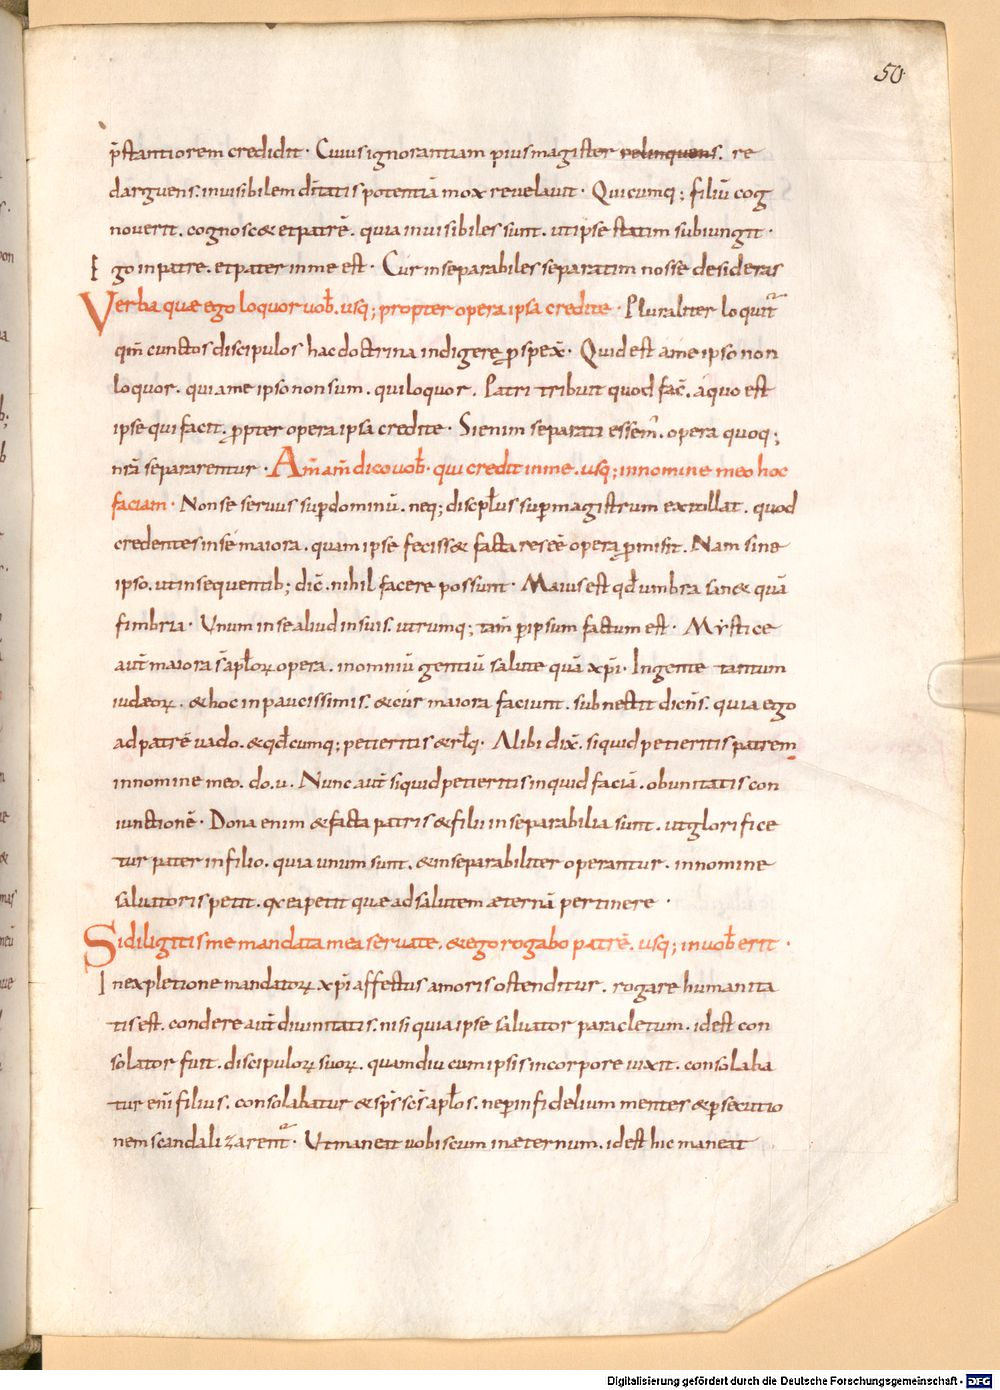 50
p̄stantiorem credidit · Cuius ignorantiam pius magister relinquens. re
darguens. inuisibilem diūitatis potentiā mox reuelauit · Quicumq; filiū cog
nouerit. cognosc& et patrē. quia inuisibiles sunt. ut ipse statim subiungit ·
Ego in patre. et pater in me est · Cur inseparabiles separatim nosse desideras
Verba quae ego loquor uob̄. usq; propter opera ipsa credite · Pluraliter loquit̄
qm̄ cunctos discipulos hac doctrina indigere ꝓspex̄ · Quid est a me ipso non
loquor. qui a me ipso non sum. qui loquor. Patri tribuit quod fac̄. a quo est
ipse qui facit. ꝓpter opera ipsa credite · Si enim separati essem̄. opera quoq;
nr̄a separarentur · Am̄ am̄ dico uob̄. qui credit in me. usq; in nomine meo hoc
faciam · Non se seruus sup dominū. neq; discipl̄us sup magistrum extollat. quod
credentes in se maiora. quam ipse feciss& facta r esē opera ꝓmisit. Nam sine
ipso. ut in sequentib; dic̄. nihil facere possunt · Maius est qd̄ umbra san& quā
fimbria · Unum in se aliud in suis. utrumq; tam̄ p ipsum factum est · Mystice
aut̄ maiora s̄ apl̄oꝝ opera. in omniū gentiū salute quā xp̄i. In gente tantum
iudaeoꝝ. & hoc in paucissimis. & cur maiora faciunt. subnectit dicn̄s. quia ego
ad patrē uado. & qd̄cumq; petieritis & rl̄q · Alibi dix̄. si quid petieritis patrem
in nomine meo. do. u. Nunc aut̄ si quid petieritis inquid faciā. ob unitatis con
iunctionē · Dona enim & facta patris & filii inseparabilia sunt. ut glorifice
tur pater in filio. quia unum sunt. & inseparabiliter operantur. in nomine
saluatoris petit. qi ea petit quae ad salutem aeternā pertinere ·
Si diligitis me mandata mea seruate. & ego rogabo patrē. usq; in uob̄ erit ·
In expletione mandatoꝝ xp̄i affectus amoris ostenditur. rogare humanita
tis est. condere aut̄ diuinitatis. nisi quia ipse saluator paracletum. id est con
solator fuit. discipuloꝝ suoꝝ. quamdiu cum ipsis in corpore uixit. consolaba
tur eni filius. consolabatur & sp̄s sc̄s apl̄os. ne p infidelium mentes & psecutio
nem scandalizarent̄ · Ut maneat uobiscum in aeternum. id est hic maneat
Digitalisierung gefördert durch die Deutsche Forschungsgemeinschaft - DFG